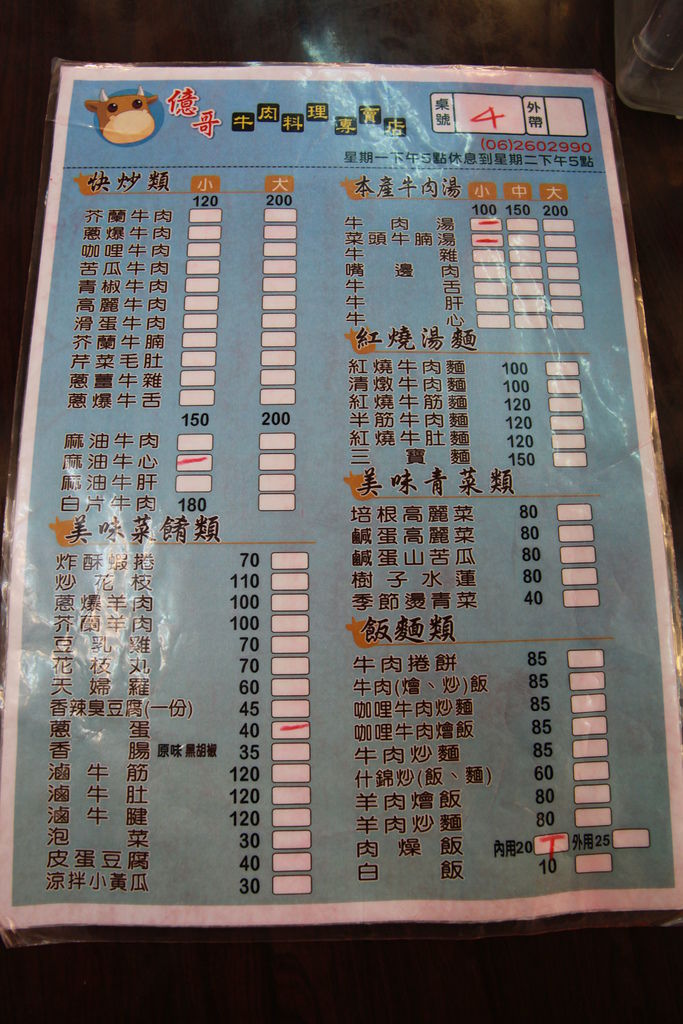 億哥
牛肉料理專賣店
桌號 4 外帶
(06)2602990
星期一下午5點休息到星期二下午5點
快炒類 小 大
120 200
芥蘭牛肉
蔥爆牛肉
咖哩牛肉
苦瓜牛肉
青椒牛肉
高麗牛肉
滑蛋牛肉
芥蘭牛腩
芹菜毛肚
蔥薑牛雜
蔥爆牛舌
150 200
麻油牛肉
麻油牛心
麻油牛肝
白片牛肉 180
美味菜餚類
炸酥蝦捲 70
炒花枝 110
蔥爆羊肉 100
芥蘭羊肉 100
豆乳雞 70
花枝丸 70
天婦羅 60
香辣臭豆腐(一份) 45
蔥蛋 40
香腸 原味 黑胡椒 35
滷牛筋 120
滷牛肚 120
滷牛腱 120
泡菜 30
皮蛋豆腐 40
涼拌小黃瓜 30
本產牛肉湯 小 中 大
100 150 200
牛肉湯
菜頭牛腩湯
牛雜
嘴邊肉
牛舌
牛肝
牛心
紅燒湯麵
紅燒牛肉麵 100
清燉牛肉麵 100
紅燒牛筋麵 120
半筋牛肉麵 120
紅燒牛肚麵 120
三寶麵 150
美味青菜類
培根高麗菜 80
鹹蛋高麗菜 80
鹹蛋山苦瓜 80
樹子水蓮 80
季節燙青菜 40
飯麵類
牛肉捲餅 85
牛肉(燴、炒)飯 85
咖哩牛肉炒麵 85
咖哩牛肉燴飯 85
牛肉炒麵 85
什錦炒(飯、麵) 60
羊肉燴飯 80
羊肉炒麵 80
肉燥飯 內用20 T 外用25
白飯 10